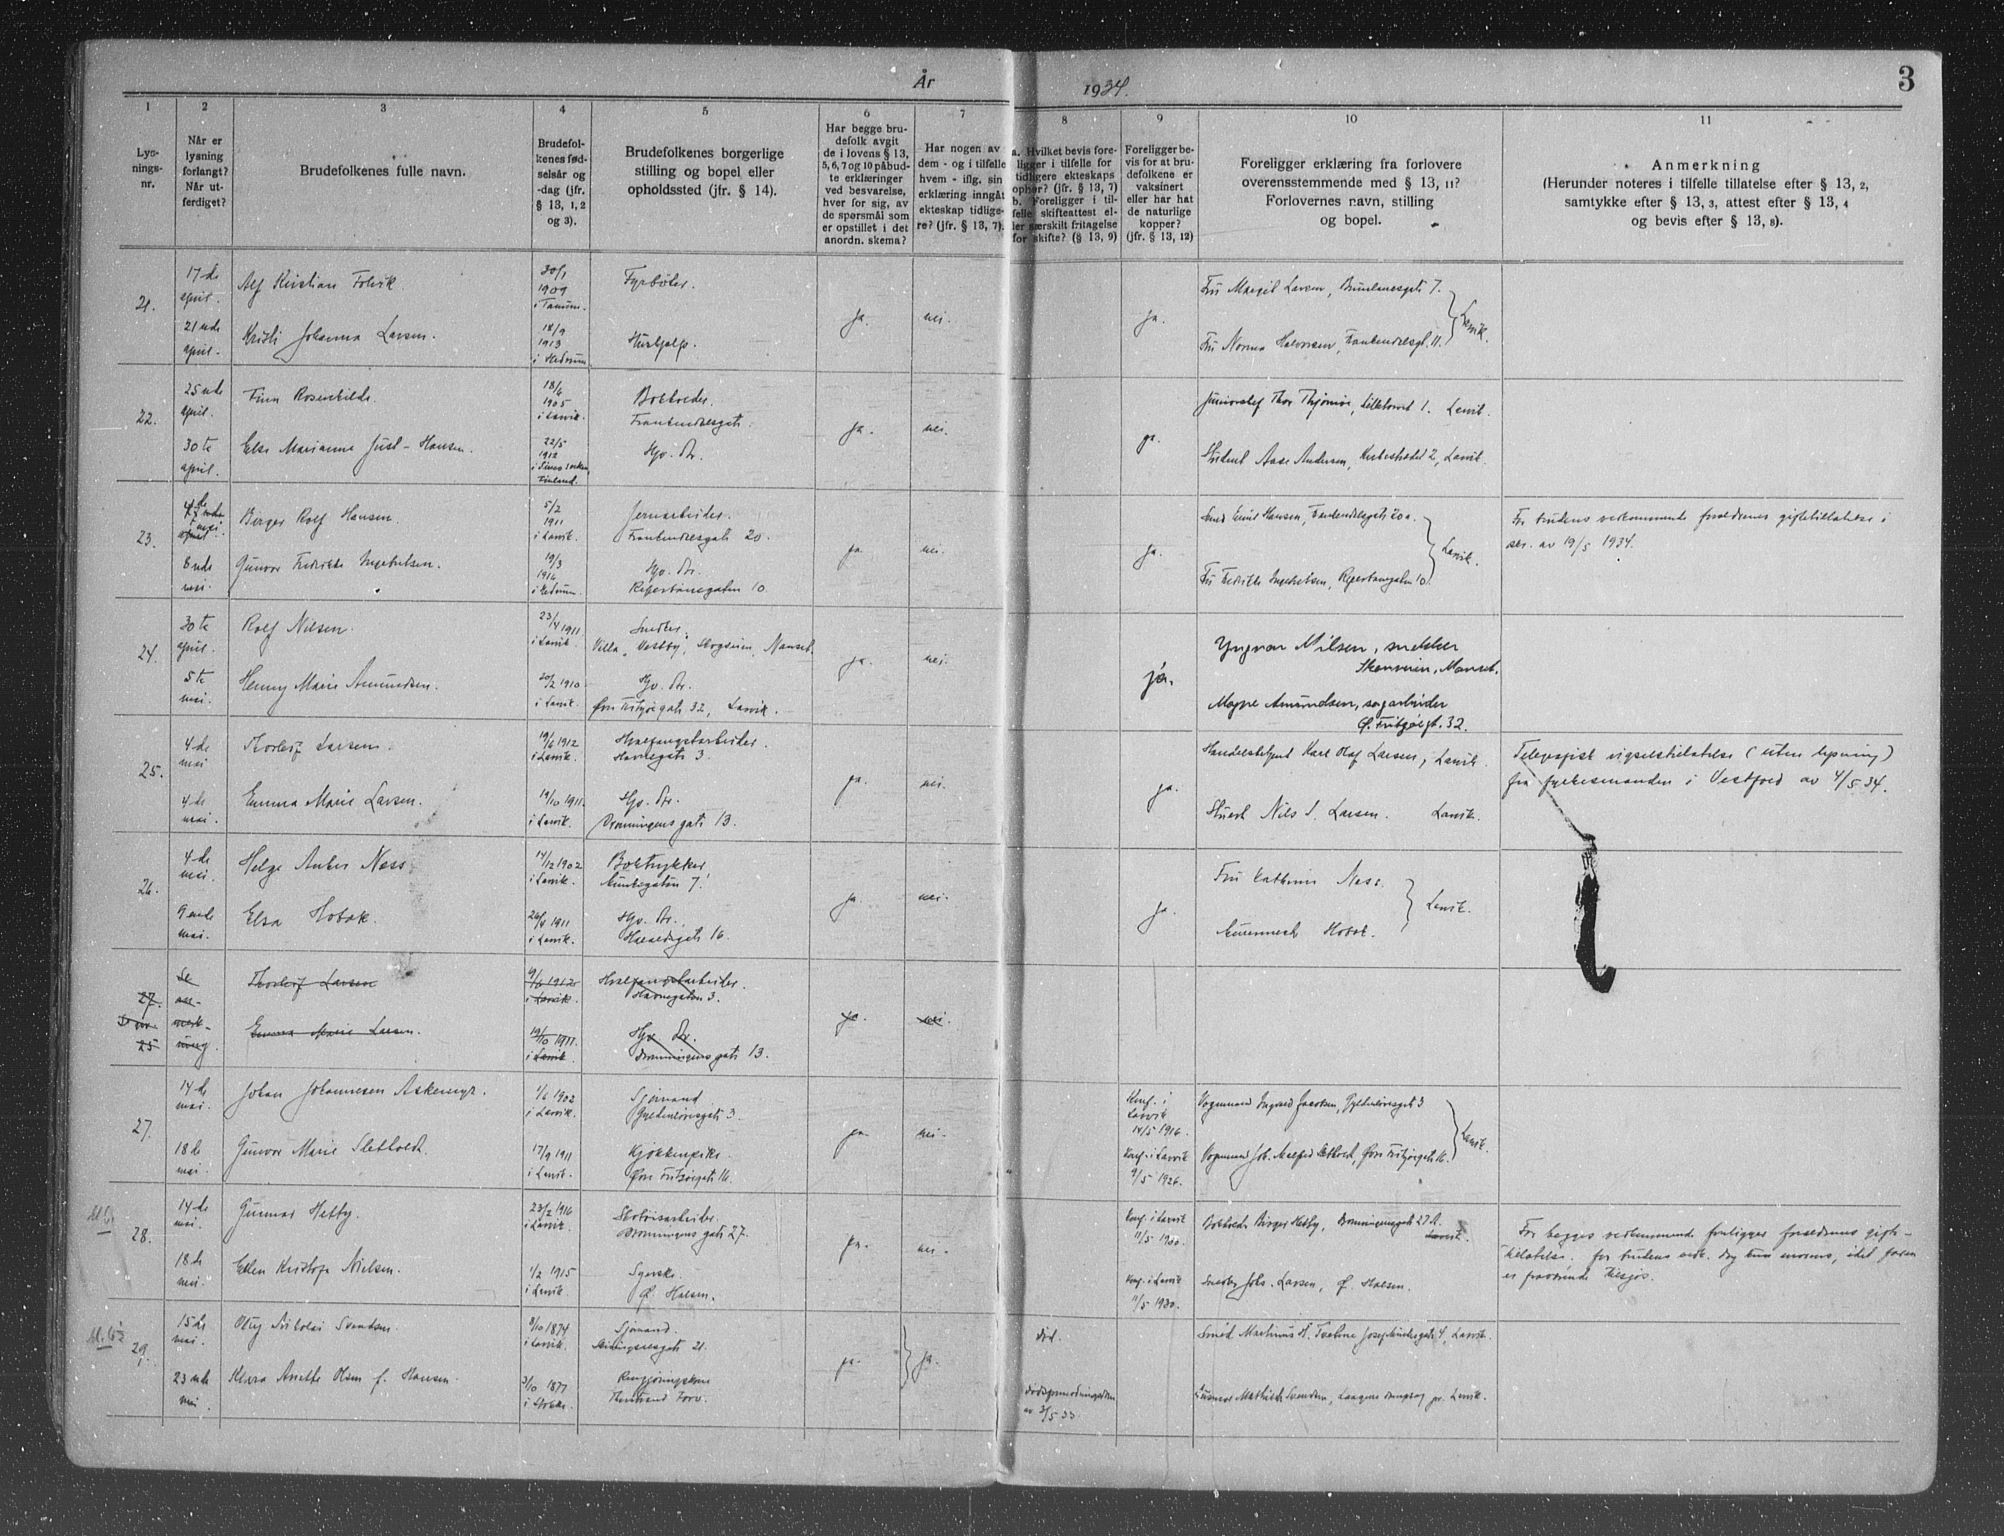 År 1934.
3
1 2 3 4 5 6 7 8 9 10 11
Lys-
nings-
nr.
Når er
lysning
forlangt?
Når ut-
ferdiget?
Brudefolkenes fulle navn.
Brudefol-
kenes fød-
selsår og
-dag (jfr.
§ 13, 1, 2
og 3).
Brudefolkenes borgerlige
stilling og bopel eller
opholdssted (jfr. § 14).
Har begge bru-
defolk avgit
de i lovens § 13,
5, 6, 7 og 10 påbud-
te erklæringer
ved besvarelse,
hver for sig, av
de spørsmål som
er opstillet i det
anordn. skema?
Har nogen av
dem - og i tilfelle
hvem - iflg. sin
erklæring inngått
ekteskap tidlige-
re? (jfr. § 13, 7).
a. Hvilket bevis fore-
ligger i tilfelle for
tidligere ekteskaps
ophør? (jfr. § 13, 7)
b. Foreligger i til-
felle skifteattest el-
ler særskilt fritagelse
for skifte? (§ 13, 9)
Foreligger be-
vis for at bru-
defolkene er
vaksinert
eller har hat
de naturlige
kopper?
(jfr. § 13, 12)
Foreligger erklæring fra forlovere
overensstemmende med § 13, 11?
Forlovernes navn, stilling
og bopel.
Anmerkning
(Herunder noteres i tilfelle tillatelse efter § 13, 2,
samtykke efter § 13, 3, attest efter § 13, 4
og bevis efter § 13, 8).
21.
17de
april.
Alf Kristian Folvik.
30/1
1909
i Tanum.
Fyrbøter.
ja. nei. ja.
Fru Margit Larsen, 7.
21nde
april.
Kristi Johanna Larsen.
18/9
1913
i Hedrum
Hushjelp.
Fru Norma Halvorsen, 11.
Larvik.
22.
25nde
april.
Finn Rosenkilde.
18/6
1905
i Larvik.
ja. nei. ja.
Thor Thjømøe, 1. Larvik.
30te
april.
Else Marianne Just-Hansen.
22/5
1912
Finland.
Hjv. Dr.
Student Aase Andersen, 2, Larvik.
23.
mai
Birger Rolf Hansen.
5/2
1911
i Larvik.
Jernarbeider.
20.
ja nei. ja.
Smed Emil Hansen, 20a.
For brudens vedkommende foreldrenes giftetillatelse i
skr. av 19/5 1934.
8nde
mai.
Gunvor Fredrikke Ingebretsen.
19/3
1916
i Hedrum.
Hjv. Dr.
Reperbanegaten 10.
Fru Fredrikke Ingebretsen, Reperbanegaten 10.
Larvik.
24.
30te
april.
Rolf Nilsen.
23/4 1911
i Larvik.
Snekker.
Villa "Vestby", Skogveien, Nanset.
ja. nei. ja.
Yngvar Nilsen, snekker
Nanset.
5te
mai.
Henny Marie Amundsen.
20/2 1910
i Larvik.
Hjv. Dr.
Øvre Fritzøegate 32, Larvik.
Magne Amundsen, sagarbeider
Ø. Fritzøegt. 32.
25.
4de
mai
Thorleif Larsen.
19/6 1912
i Larvik.
Hvalfangstarbeider.
Havnegate 3
ja. nei. ja.
Handelsbetjent Karl Olaf Larsen, Larvik.
Telegrafisk vigselstillatelse (uten lysning)
fra fylkesmanden i Vestfold av 4/5 34.
4de
mai.
Emma Marie Larsen.
19/10 1911.
i Larvik.
Hjv. Dr.
Dronningens gate 13.
Stuert Nils S. Larsen. Larvik.
26.
4de
mai.
Helge Anker Ness
14/12 1902
i Larvik.
Boktrykker
7.
ja. nei. ja.
Fru Kathrine Ness.
9nde
mai.
Elsa Hobæk.
26/4 1911
i Larvik.
Hjv. Dr.
Haraldsgate 16.
Hobæk.
Larvik.
27.
Se nr.
25
Se
an-
merk-
ning.
Thorleif Larsen
9/6 1912
i Larvik.
Hvalfangstarbeider.
Havnegaten 3.
ja. nei.
Emma Marie Larsen.
19/10 1911.
i Larvik.
Hjv. Dr.
Dronningens gate 13.
27.
14de
mai.
Johan Johannesen Askemyr.
1/6 1902
i Larvik.
Sjømand
Gyldenløvesgate 3.
ja. nei.
Konf. i
Larvik
14/5 1916.
Vognmand Ingvald Jacobsen, Gyldenløvesgate 3
18de
mai.
Gunvor Marie Sletholdt.
17/9 1911
i Larvik.
Kjøkkenpike.
Øvre Fritzøegate 16.
Konf. i Larvik
9/5 1926.
Vognmand Joh. Sletholdt, Øvre Fritzøegate 16.
Larvik.
28.
14de
mai.
Gunnar Hetby.
23/2 1916
i Larvik.
Skotøisarbeider.
Dronningens gate 27.
ja. nei.
Konf. i Larvik
11/5 1930.
Birger Hetby, Dronningensgate 27A.
Larvik.
For begges vedkommende foreligger foreldrenes gifte-
tillatelse. for brudens vedk. dog kun morens, idet faren
er fraværende tilsjøs.
18de
mai.
Ellen Kristofa Nielsen.
1/2 1915
i Larvik.
Syerske.
Ø. Halsen.
Konf. i Larvik
11/5 1930.
Snekker Johs. Larsen, Ø. Halsen.
29.
15de
mai.
Oluf Nikolai Svendsen.
8/10 1874
i Larvik.
Sjømand.
21.
ja. ja.
Død.
Smed Martinus H. Tveitene 4, Larvik.
23nde
mai.
Klara Anette Olsen f. Hansen.
3/10 1877
i Stokke.
Rengjøringskone
Torv.
av 3/5 33
Mathilde Svendsen, pr. Larvik.